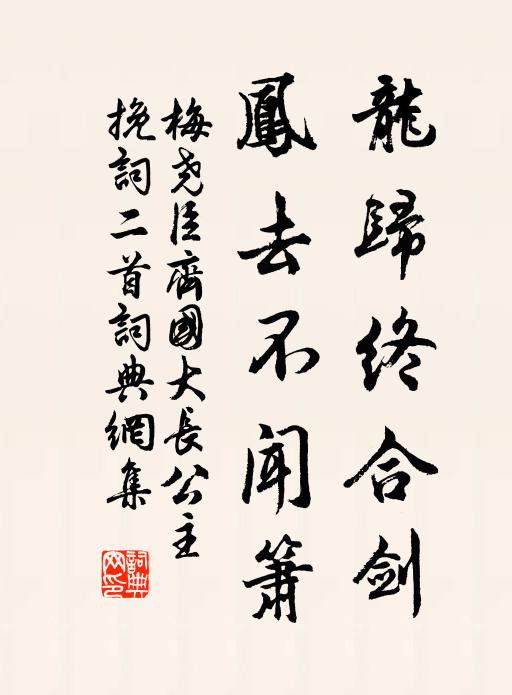 龍歸終合剑
鳳去不闻簫
梅尧臣齊國大長公主
挽詞二首詞典網集
詞典網印